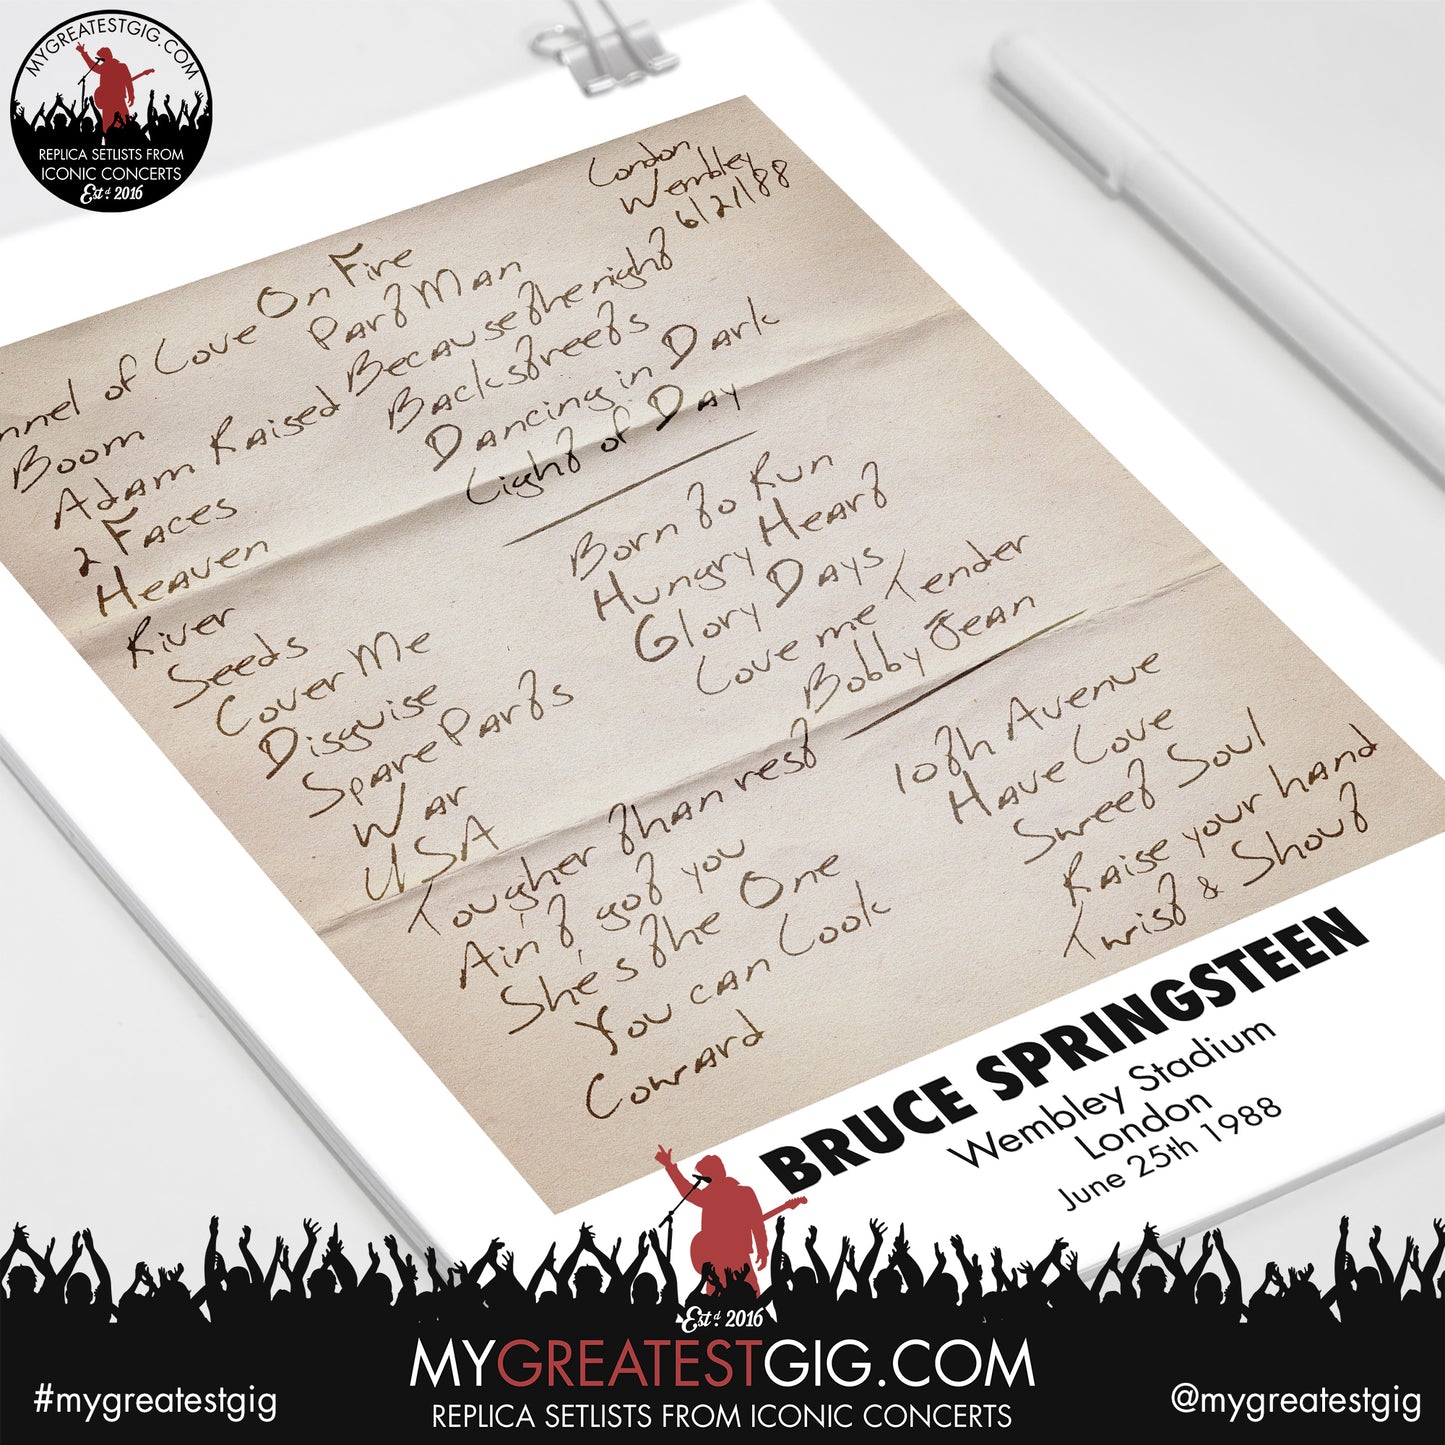 MYGREATESTGIG.COM
REPLICA SETLISTS FROM
ICONIC CONCERTS
Estd. 2016
London
Wembley
6/21/88
nnel of Love
Boom
Adam Raised
2 Faces
Heaven
River
Seeds
Cover Me
Disguise
Spare Parts
War
USA
Tougher than rest
Ain't got you
She's the One
You can Look
Coward
On Fire
Part Man
Because the night
Backstreets
Dancing in Dark
Light of Day
Born to Run
Hungry Heart
Glory Days
Love me Tender
Bobby Jean
10th Avenue
Have Love
Sweet Soul
Raise your hand
Twist & Shout
BRUCE SPRINGSTEEN
Wembley Stadium
London
June 25th 1988
Estd. 2016
MYGREATESTGIG.COM
REPLICA SETLISTS FROM ICONIC CONCERTS
#mygreatestgig
@mygreatestgig